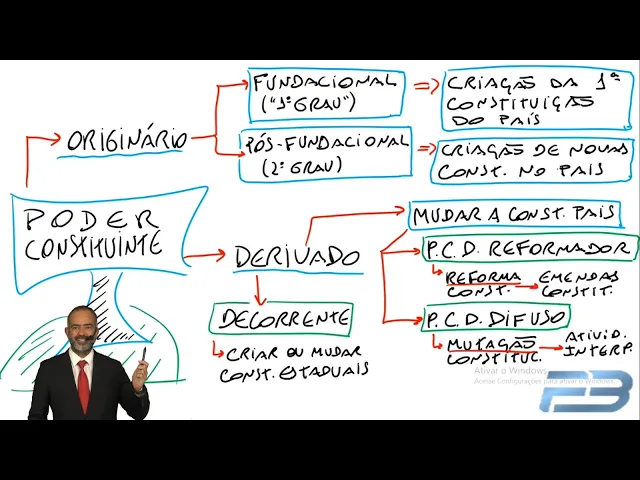 FUNDACIONAL
("1º GRAU")
CRIAÇÃO DA 1ª
CONSTITUIÇÃO
DO PAÍS
ORIGINÁRIO
PÓS-FUNDACIONAL
(2º GRAU)
CRIAÇÃO DE NOVAS
CONST. NO PAÍS
PODER
CONSTITUINTE
MUDAR A CONST. PAÍS
DERIVADO
P.C.D. REFORMADOR
REFORMA
CONST.
EMENDAS
CONSTIT.
DECORRENTE
CRIAR OU MUDAR
CONST. ESTADUAIS
P.C.D. DIFUSO
MUTAÇÃO
CONSTITUC.
ATIVID.
INTERP.
Ativar o Windows
Acesse Configurações para ativar o Windows.